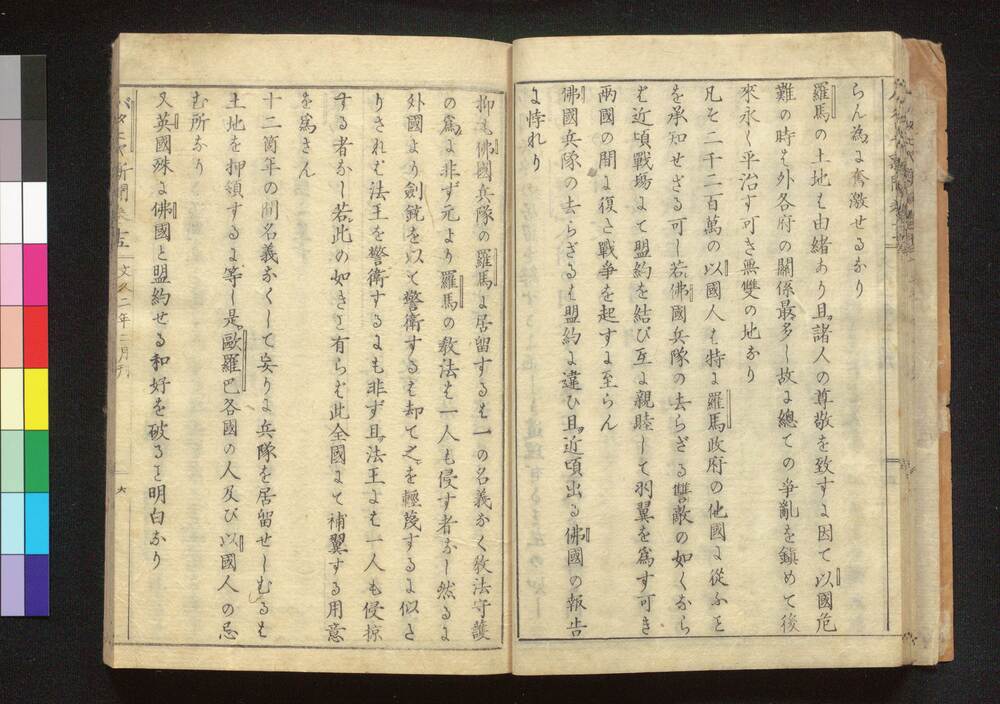 らん為よ奮激せるなり
羅馬の土地も由緒あり且諸人の尊敬を致すよ因て以國危
難の時も外各府の關係最多し故よ總ての争亂を鎮めて後
來永く平治す可き無雙の地なり
凡そ二千二百萬の以國人も特よ羅馬政府の他國よ從ふを
を承知せざる可し若佛國兵隊の去らざる讐敵の如くなら
も近頃戰場よて盟約を結び互よ親睦して羽翼を為す可き
兩國の間よ復た戰争を起すよ至らん
佛國兵隊の去らざるも盟約よ違ひ且近頃出る佛國の報告
よ悖れり
抑も佛國兵隊の羅馬よ居留するも一の名義なく教法守護
の為よ非ず元より羅馬の教法も一人も侵す者なし然るよ
外國より劍銃を以て警衛するも却て之を輕蔑するよ似た
りされむ法王を警衛するよも非ず且法王よも一人も侵掠
する者なし若此の如きと有らむ此全國よて補翼する用意
を為さん
十二箇年の間名義なくして妄りよ兵隊を居留せしむるも
土地を押領するよ等し是歐羅巴各國の人及び以國人の忌
む所なり
又英國殊よ佛國と盟約せる和好を破ると明白なり
バタヒヤ新聞卷十五 文久二年二月刊 六